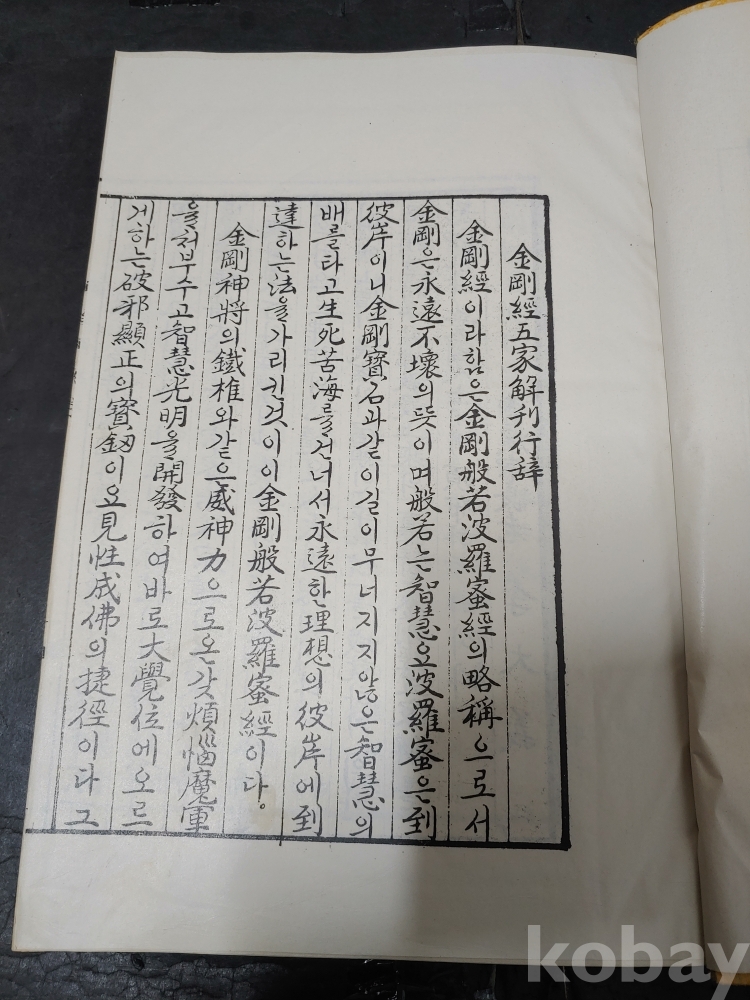 金剛經五家解刊行辞
金剛經이라함은金剛般若波羅蜜經의略稱으로서
金剛은永遠不壞의뜻이며般若는智慧요波羅蜜은到
彼岸이니金剛寶石과같이길이무너지지않은智慧의
배를타고生死苦海를건너서永遠한理想의彼岸에到
達하는法을가리킨것이이金剛般若波羅蜜經이다。
金剛神將의鐵椎와같은威神力으로온갖煩惱魔軍
을처부수고智慧光明을開發하여바로大覺位에오르
게하는破邪顯正의寶釼이요見性成佛의捷徑이다그
kobay